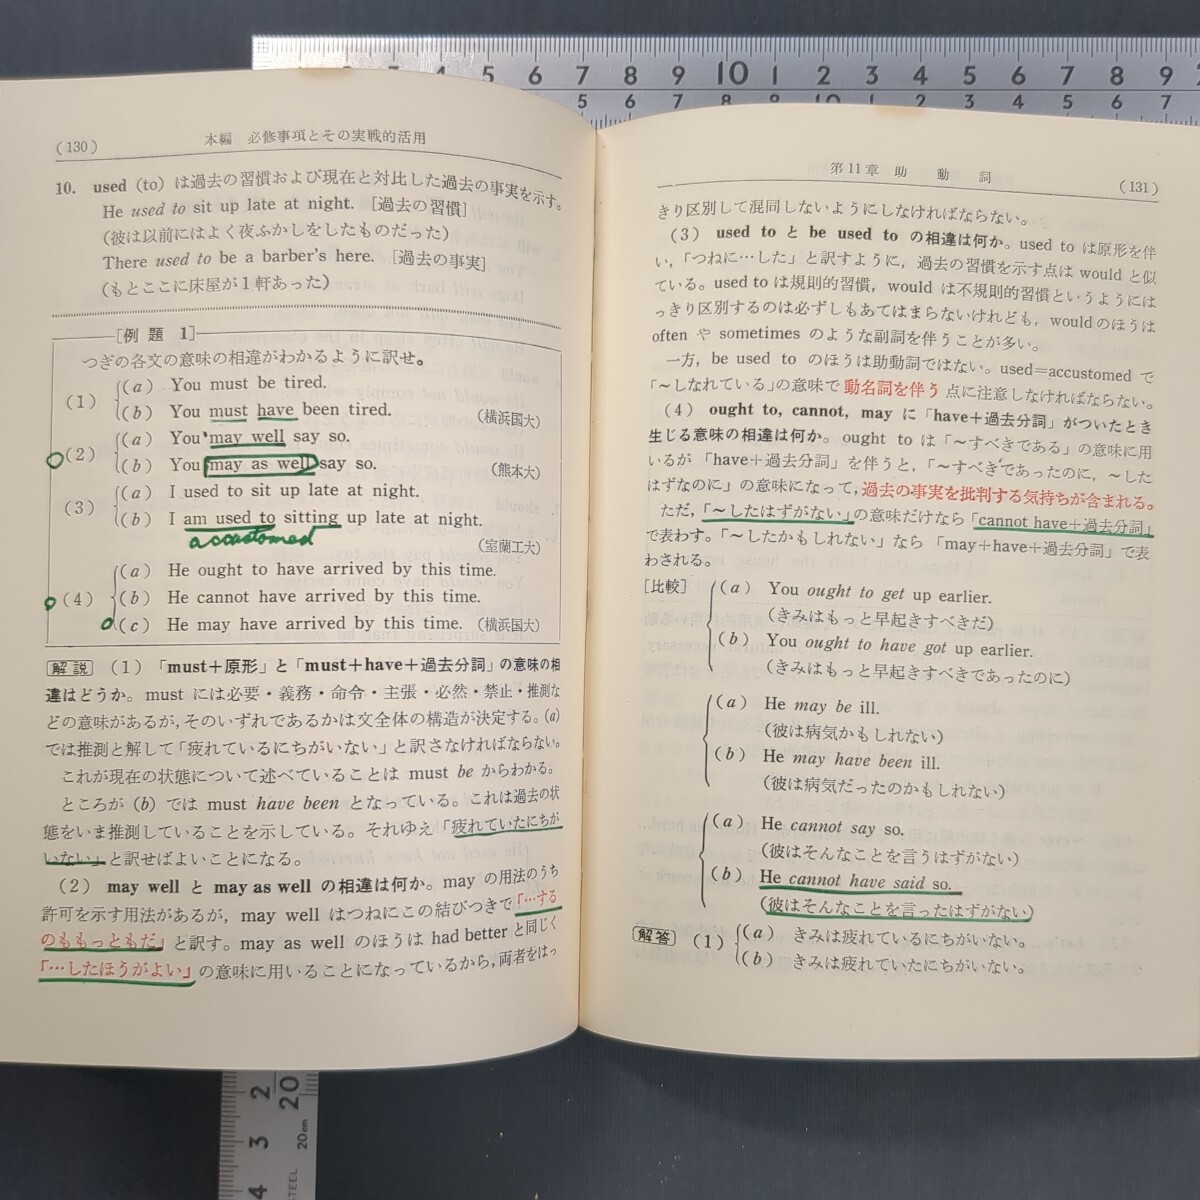 3 4 5 6 7 8 9 10 1 2 3 4 5 6 7 8 9
5 6 7 8 9 10 1 2 3 4 5 6 7
(130) 本編 必修事項とその実戦的活用
10. used (to) は過去の習慣および現在と対比した過去の事実を示す。
He used to sit up late at night. [過去の習慣]
(彼は以前にはよく夜ふかしをしたものだった)
There used to be a barber's here. [過去の事実]
(もとここに床屋が1軒あった)
[例題 1]
つぎの各文の意味の相違がわかるように訳せ。
(1) (a) You must be tired.
(b) You must have been tired. (横浜国大)
(2) (a) You may well say so.
(b) You may as well say so. (熊本大)
(3) (a) I used to sit up late at night.
(b) I am used to sitting up late at night.
accustomed (室蘭工大)
(4) (a) He ought to have arrived by this time.
(b) He cannot have arrived by this time.
(c) He may have arrived by this time. (横浜国大)
[解説] (1) 「must+原形」と「must+have+過去分詞」の意味の相
違はどうか。must には必要・義務・命令・主張・必然・禁止・推測な
どの意味があるが,そのいずれであるかは文全体の構造が決定する。(a)
では推測と解して「疲れているにちがいない」と訳さなければならない。
これが現在の状態について述べていることは must be からわかる。
ところが (b) では must have been となっている。これは過去の状
態をいま推測していることを示している。それゆえ「疲れていたにちが
いない」と訳せばよいことになる。
(2) may well と may as well の相違は何か。may の用法のうち
許可を示す用法があるが, may well はつねにこの結びつきで「…する
のももっともだ」と訳す。may as well のほうは had better と同じく
「…したほうがよい」の意味に用いることになっているから,両者をはっ
第11章 助動詞 (131)
きり区別して混同しないようにしなければならない。
(3) used to と be used to の相違は何か。used to は原形を伴
い,「つねに…した」と訳すように, 過去の習慣を示す点は would と似
ている。used to は規則的習慣, would は不規則的習慣というようには
っきり区別するのは必ずしもあてはまらないけれども, would のほうは
often や sometimes のような副詞を伴うことが多い。
一方, be used to のほうは助動詞ではない。used=accustomed で
「～しなれている」の意味で 動名詞を伴う 点に注意しなければならない。
(4) ought to, cannot, may に「have+過去分詞」がついたとき
生じる意味の相違は何か。ought to は「～すべきである」の意味に用
いるが 「have+過去分詞」を伴うと,「～すべきであったのに, ～した
はずなのに」の意味になって, 過去の事実を批判する気持ちが含まれる。
ただ,「～したはずがない」の意味だけなら「cannot have+過去分詞」
で表わす。「～したかもしれない」なら 「may+have+過去分詞」で表
わされる。
[比較] (a) You ought to get up earlier.
(きみはもっと早起きすべきだ)
(b) You ought to have got up earlier.
(きみはもっと早起きすべきであったのに)
(a) He may be ill.
(彼は病気かもしれない)
(b) He may have been ill.
(彼は病気だったのかもしれない)
(a) He cannot say so.
(彼はそんなことを言うはずがない)
(b) He cannot have said so.
(彼はそんなことを言ったはずがない)
[解答] (1) (a) きみは疲れているにちがいない。
(b) きみは疲れていたにちがいない。
2 3 4
20
20cm
STEEL